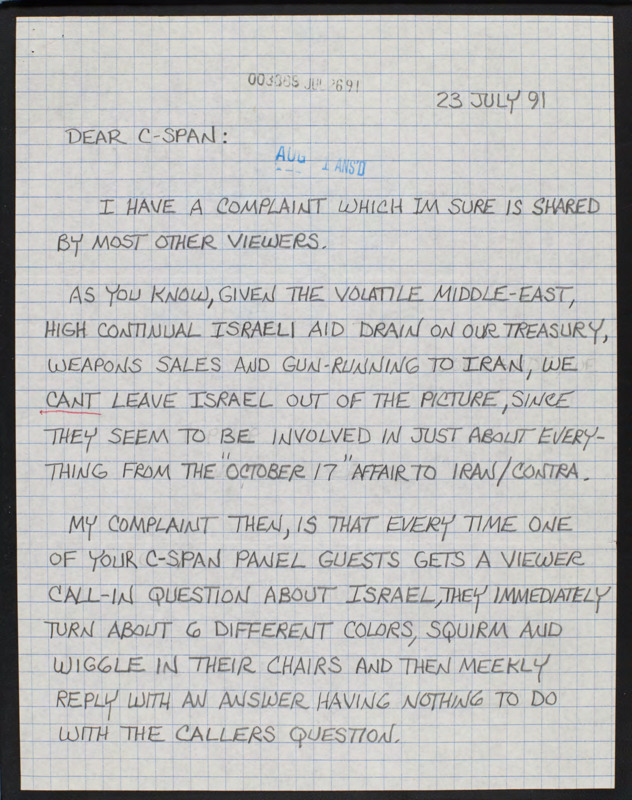 003369 JUL 26 91
23 JULY 91
DEAR C-SPAN:
AUG 1 ANS'D
I HAVE A COMPLAINT WHICH IM SURE IS SHARED
BY MOST OTHER VIEWERS.
AS YOU KNOW, GIVEN THE VOLATILE MIDDLE-EAST,
HIGH CONTINUAL ISRAELI AID DRAIN ON OUR TREASURY,
WEAPONS SALES AND GUN-RUNNING TO IRAN, WE
CANT LEAVE ISRAEL OUT OF THE PICTURE, SINCE
THEY SEEM TO BE INVOLVED IN JUST ABOUT EVERY-
THING FROM THE "OCTOBER 17" AFFAIR TO IRAN/CONTRA.
MY COMPLAINT THEN, IS THAT EVERY TIME ONE
OF YOUR C-SPAN PANEL GUESTS GETS A VIEWER
CALL-IN QUESTION ABOUT ISRAEL, THEY IMMEDIATELY
TURN ABOUT 6 DIFFERENT COLORS, SQUIRM AND
WIGGLE IN THEIR CHAIRS AND THEN MEEKLY
REPLY WITH AN ANSWER HAVING NOTHING TO DO
WITH THE CALLERS QUESTION.